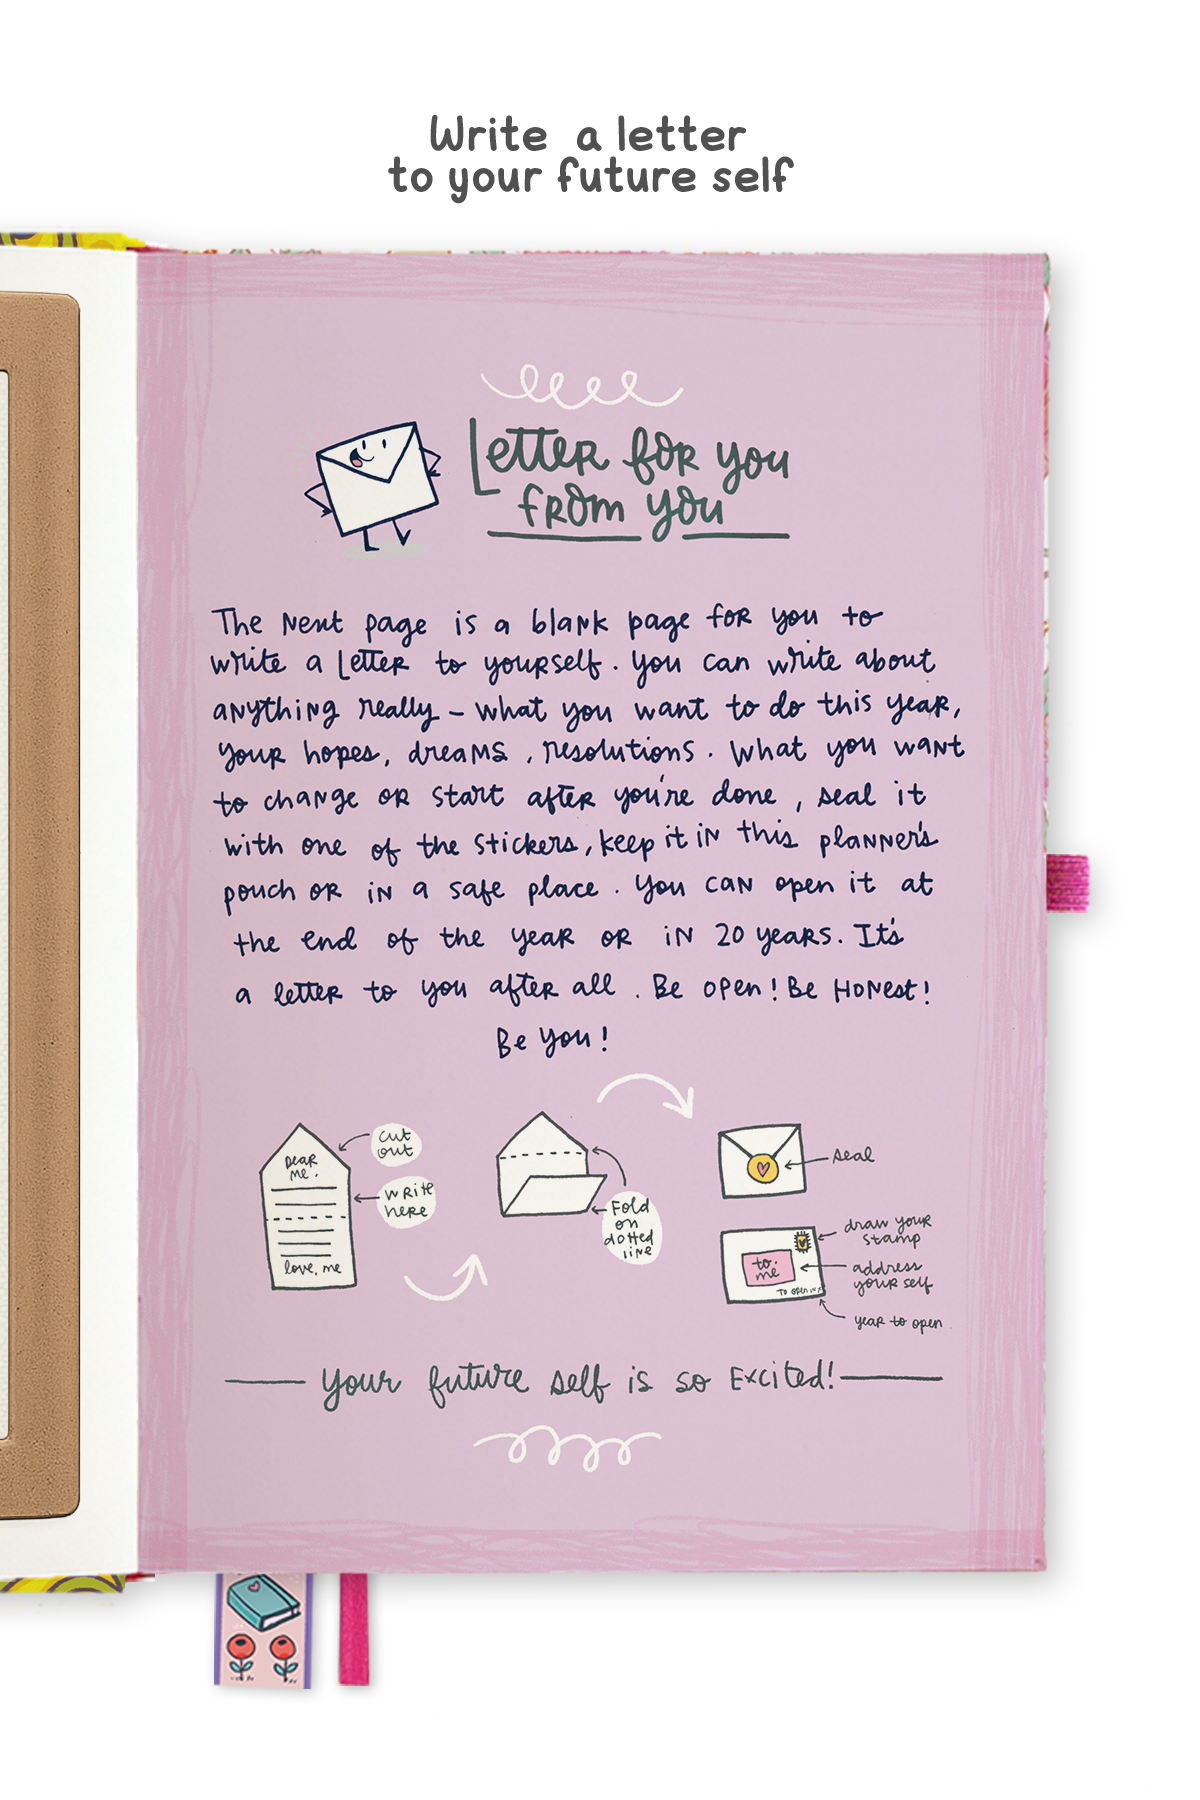 Write a letter
to your future self
Letter for you
from you
The Next page is a blank page for you to
write a letter to yourself. you can write about
anything really - what you want to do this year,
your hopes, dreams, resolutions. What you want
to change or start after you're done, seal it
with one of the stickers, keep it in this planner's
pouch or in a safe place. you can open it at
the end of the year or in 20 years. It's
a letter to you after all. Be open! Be Honest!
Be you!
Dear
me.
love, me
cut
out
write
here
Fold
on
dotted
line
seal
to:
me
To open in
draw your
stamp
address
your self
year to open
your future self is so Excited!